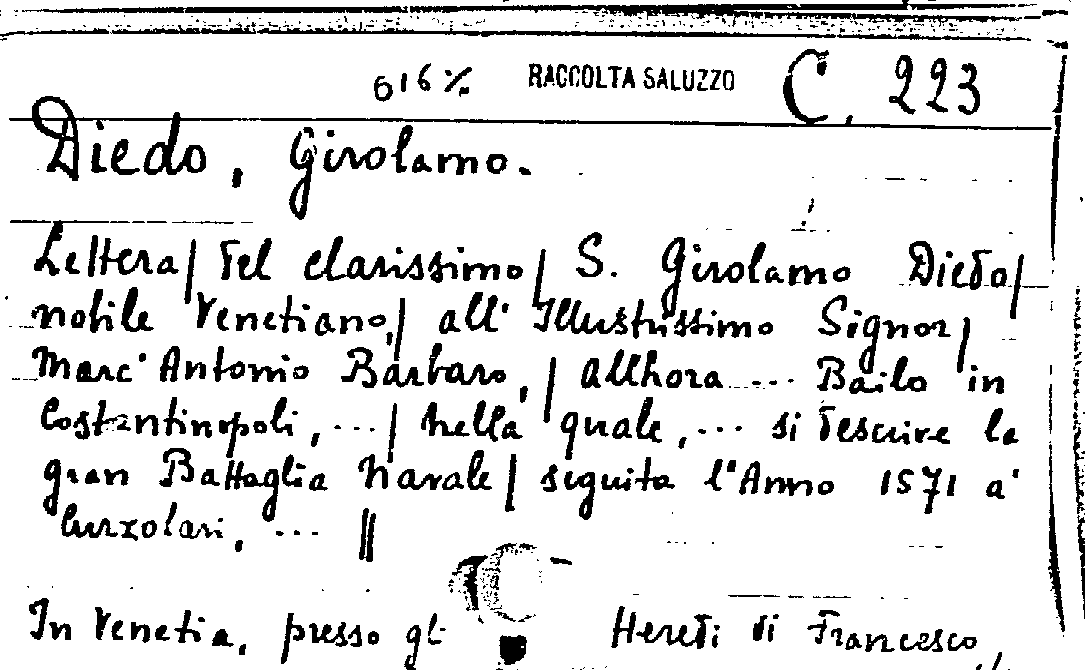 616% RACCOLTA SALUZZO C. 223
Diedo, Girolamo.
Lettera/ del clarissimo/ S. Girolamo Diedo/
nobile Venetiano,/ all' Illustrissimo Signor/
Marc' Antonio Barbaro,/ allhora ... Bailo in
Costantinopoli, .../ nella quale, ... si descrive la
gran Battaglia Navale/ seguita l'Anno 1571 a'
Curzolari, ... //
In Venetia, presso gli Heredi di Francesco,